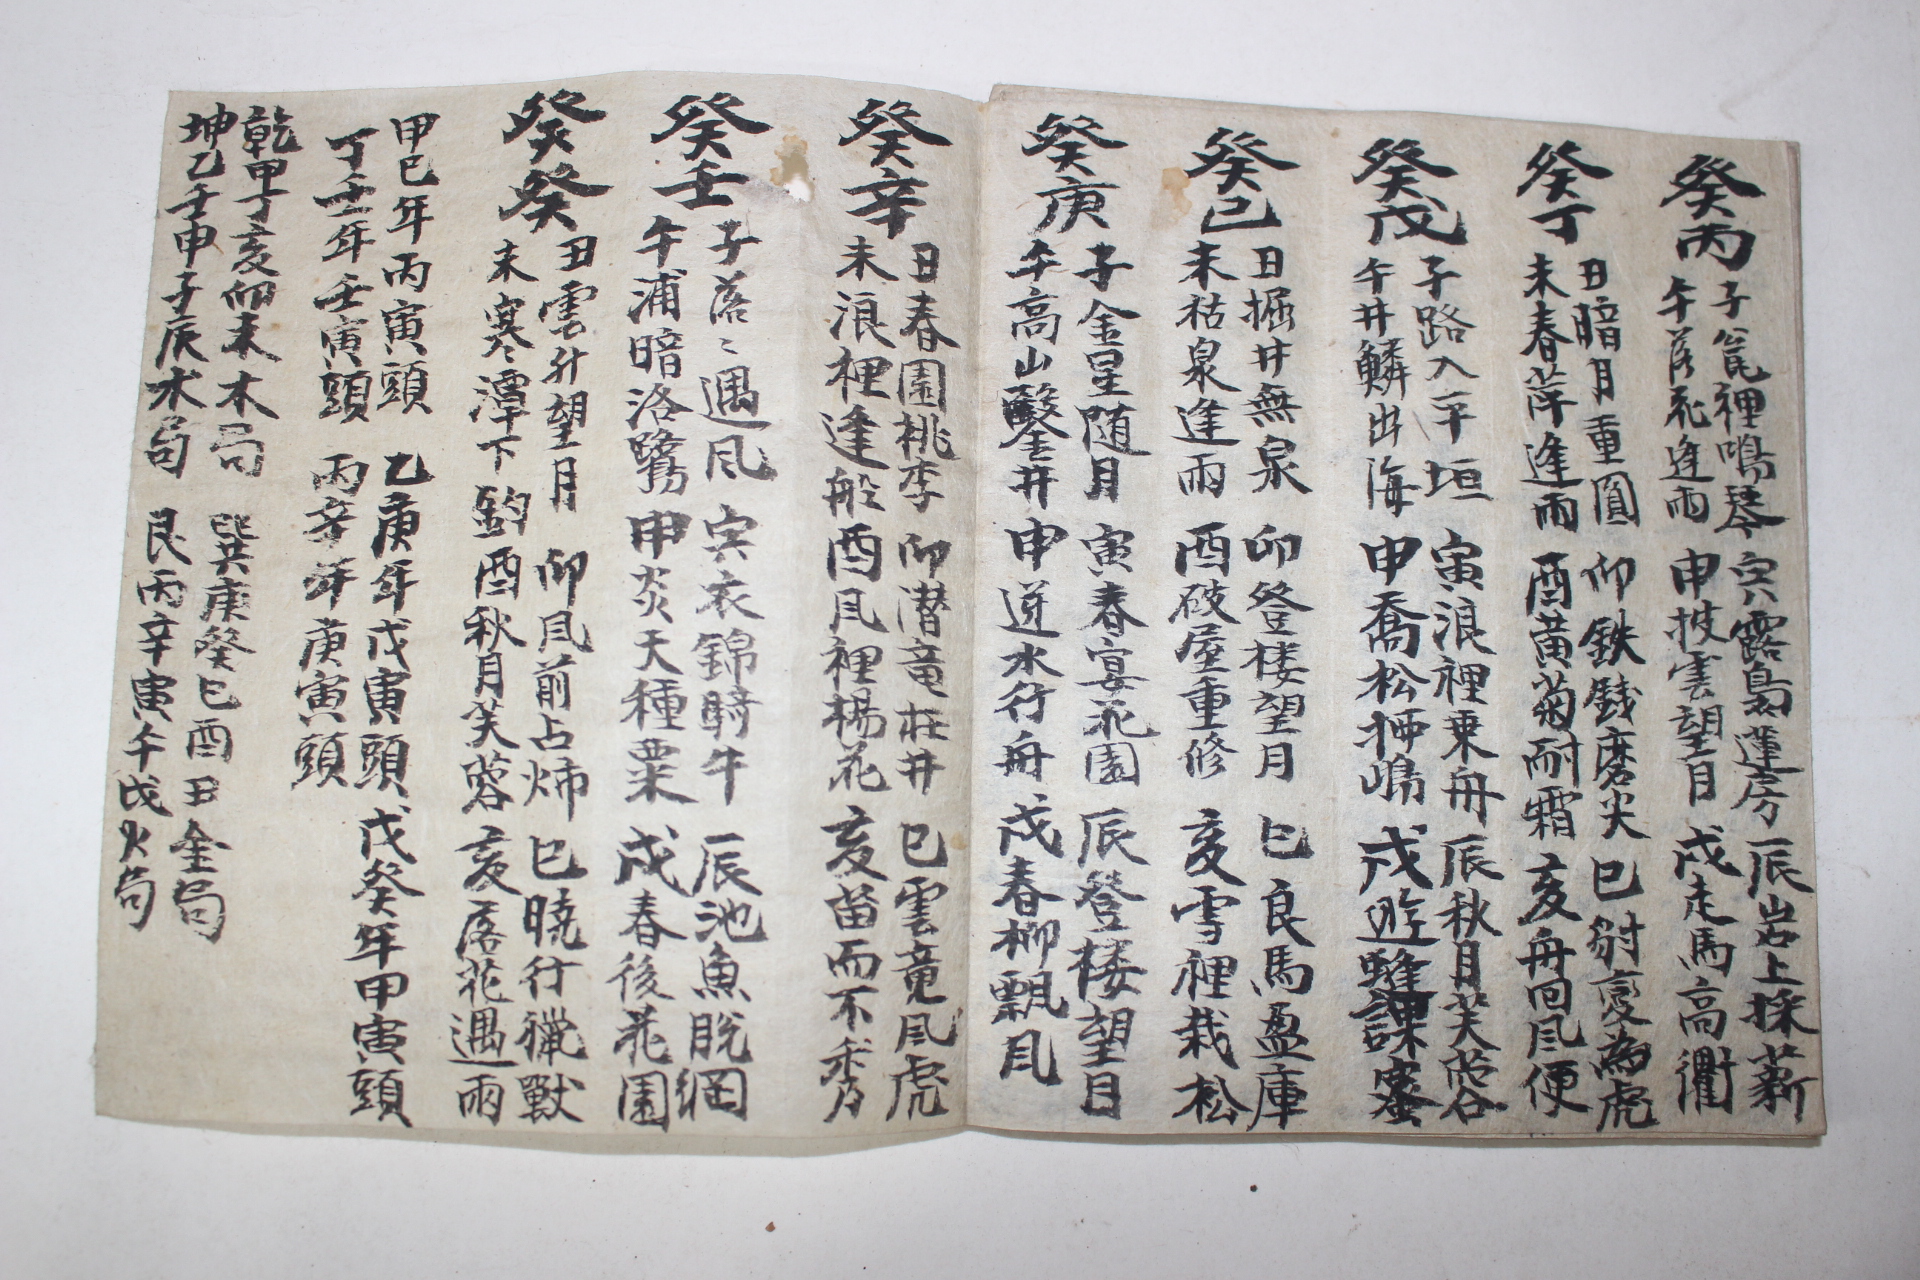 癸丙
子甕裡鳴琴 寅露鳥蓮房 辰岩上採薪
午落花逢雨 申披雲望月 戌走馬高衢
癸丁
丑暗月重圓 卯鉄銭磨尖 巳豹変為虎
未春萍逢雨 酉黃菊耐霜 亥舟回風便
癸戊
子路入平垣 寅浪裡乗舟 辰秋月芙蓉
午井鱗出海 申喬松栖鳴 戌遊蜂課蜜
癸巳
丑掘井無泉 卯登楼望月 巳良馬盈庫
未枯泉逢雨 酉破屋重修 亥雪裡栽松
癸庚
子金星随月 寅春宴花園 辰登楼望月
午高山鑿井 申逆水行舟 戌春柳飄風
癸辛
丑春園桃李 卯潜竜在井 巳雲竜風虎
未浪裡逢船 酉風裡楊花 亥苗而不秀
癸壬
子落〻遇風 寅衣錦騎牛 辰池魚脱網
午浦暗洛鷺 申炎天種粟 戌春後花園
癸癸
丑雲升望月 卯風前占 巳暁行獵獸
未寒潭下釣 酉秋月芙蓉 亥落花遇雨
甲己年丙寅頭 乙庚年戊寅頭 戊癸年甲寅頭
丁壬年壬寅頭 丙辛年庚寅頭
乾甲丁亥卯未木局 巽庚癸巳酉丑金局
坤乙壬申子辰水局 艮丙辛寅午戌火局